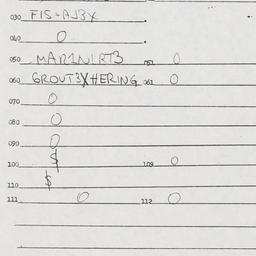 030 FIS-AJ3X
040 0
050 MAR1N1RT3 051 0
060 GROUT3XHERING 061 0
070 0
080 0
090 0
100 $ 109 0
110 $
111 0 112 0